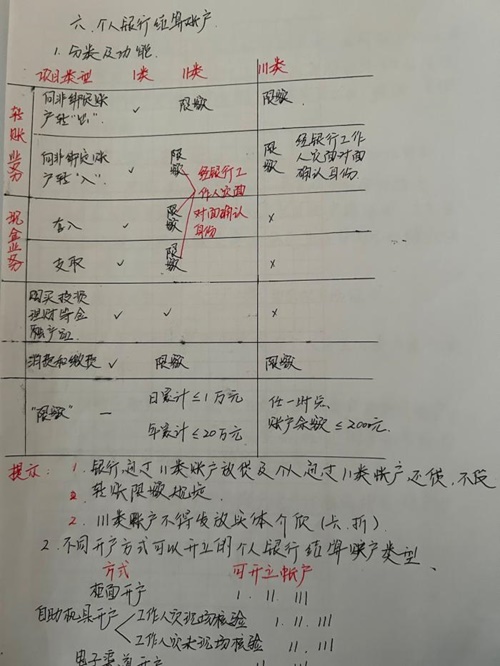 六、个人银行结算账户
1. 分类及功能
项目类型 I类 II类 III类
转账业务
向非绑定账户转“出” ✓ 限额 限额
向非绑定账户转“入” ✓ 限额 限额 经银行工作人员面对面确认身份
经银行工作人员面对面确认身份
现金业务
存入 ✓ 限额 ×
支取 ✓ 限额 ×
购买投资理财等金融产品 ✓ ✓ ×
消费和缴费 ✓ 限额 限额
“限额” — 日累计≤1万元 年累计≤20万元 任一时点账户余额≤2000元
提示: 1. 银行通过II类账户放贷及个人通过II类账户还贷,不受
转账限额规定
2. III类账户不得发放实体介质(卡、折)
2. 不同开户方式可以开立的个人银行结算账户类型
方式 可开立帐户
柜面开户 I. II. III
自助机具开户 工作人员现场核验 I. II. III
工作人员未现场核验 II. III
电子渠道开户